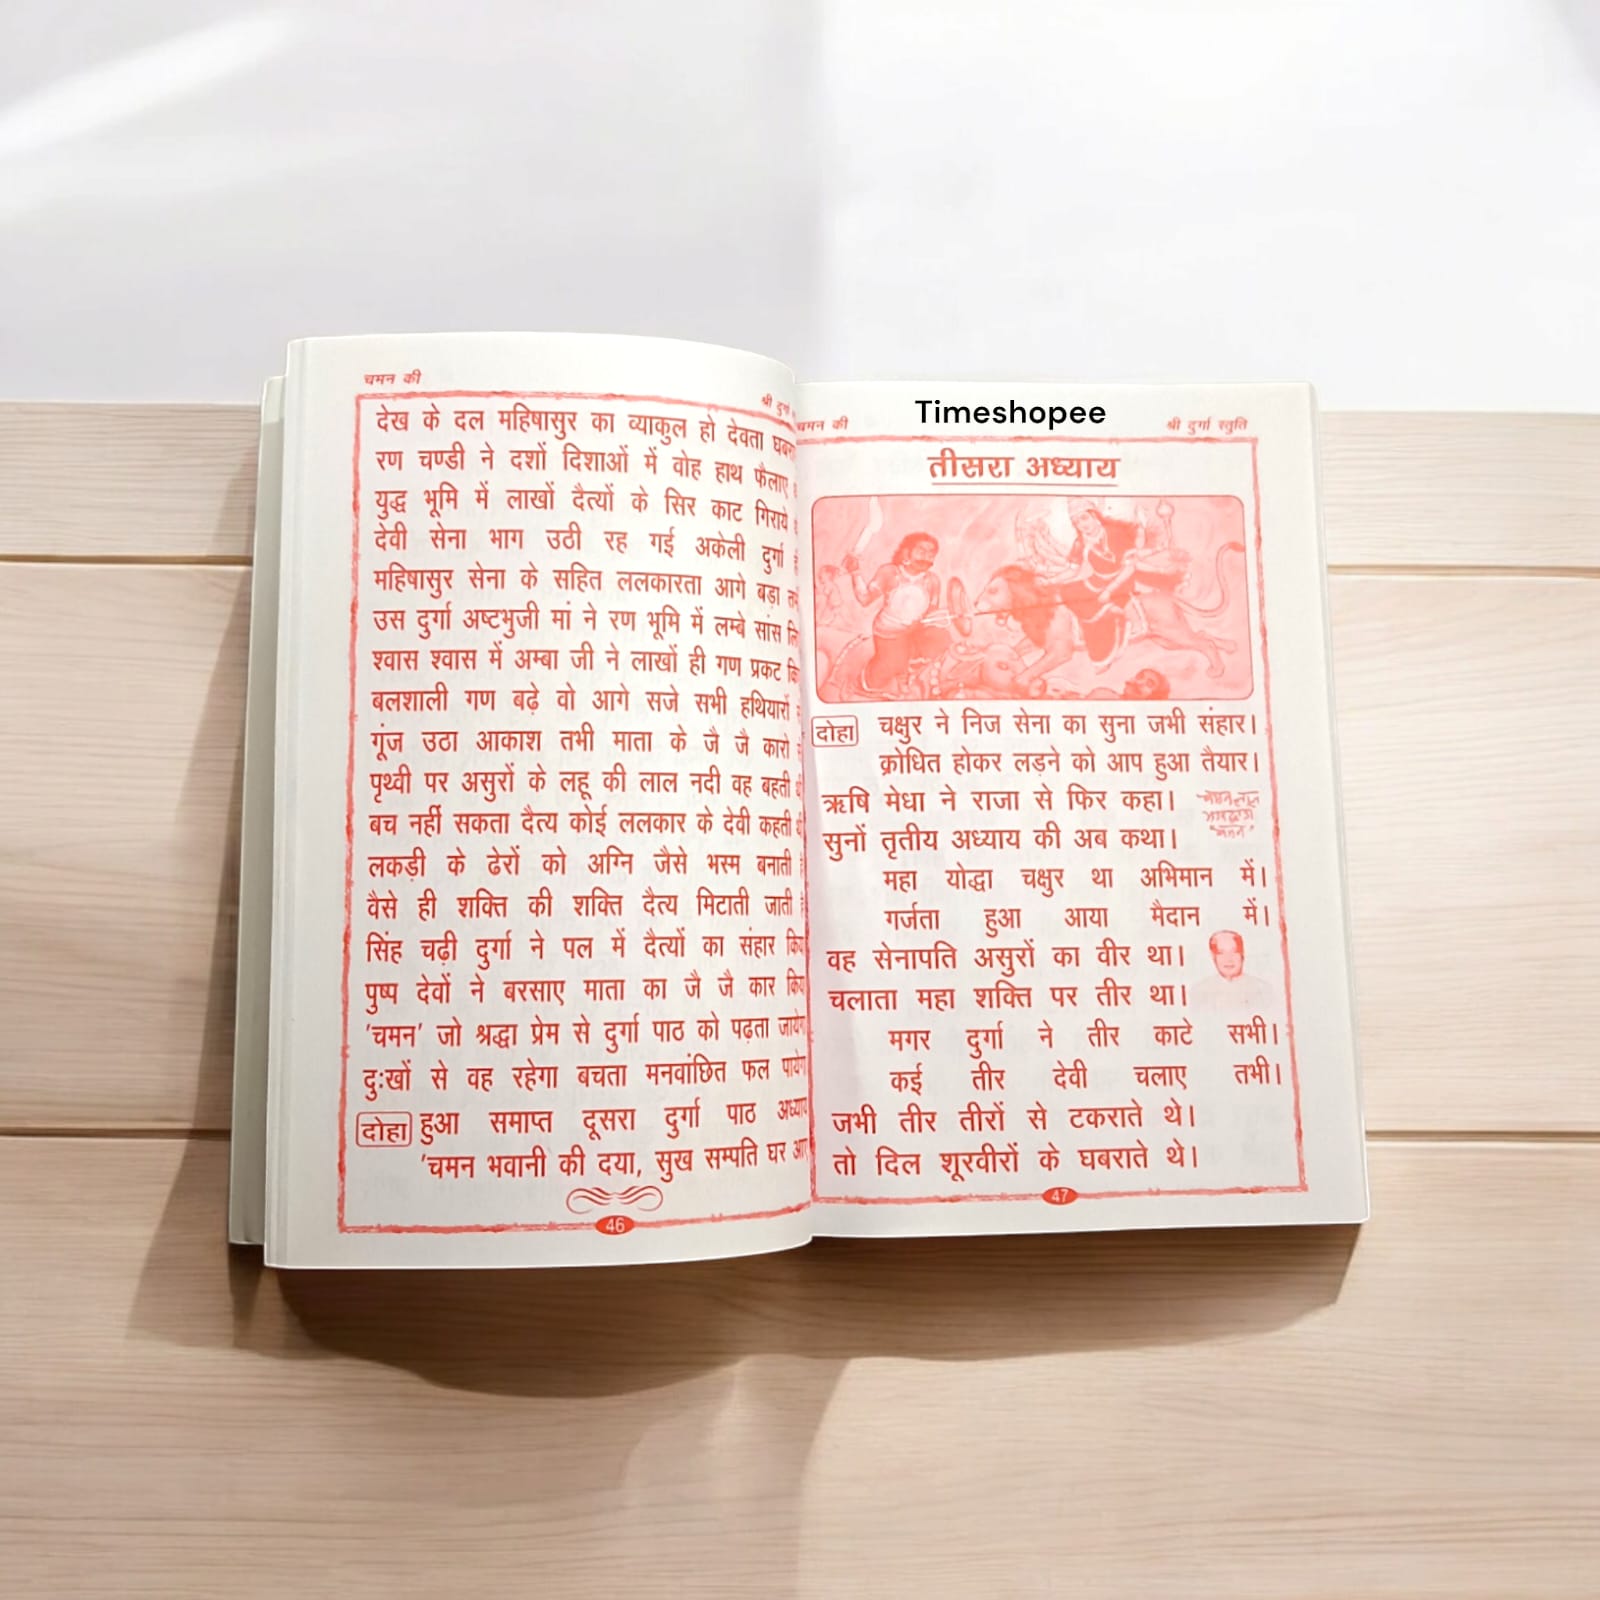 चमन की
श्री दुर्गा
देख के दल महिषासुर का व्याकुल हो देवता
रण चण्डी ने दशों दिशाओं में वोह हाथ फैलाए
युद्ध भूमि में लाखों दैत्यों के सिर काट गिराये
देवी सेना भाग उठी रह गई अकेली दुर्गा
महिषासुर सेना के सहित ललकारता आगे बड़ा
उस दुर्गा अष्टभुजी मां ने रण भूमि में लम्बे सांस
श्वास श्वास में अम्बा जी ने लाखों ही गण प्रकट
बलशाली गण बढ़े वो आगे सजे सभी हथियारों
गूंज उठा आकाश तभी माता के जै जै कारो
पृथ्वी पर असुरों के लहू की लाल नदी वह बहती
बच नहीं सकता दैत्य कोई ललकार के देवी कहती
लकड़ी के ढेरों को अग्नि जैसे भस्म बनाती
वैसे ही शक्ति की शक्ति दैत्य मिटाती जाती
सिंह चढ़ी दुर्गा ने पल में दैत्यों का संहार
पुष्प देवों ने बरसाए माता का जै जै कार
'चमन' जो श्रद्धा प्रेम से दुर्गा पाठ को पढ़ता
दुःखों से वह रहेगा बचता मनवांछित फल
दोहा हुआ समाप्त दूसरा दुर्गा पाठ अध्याय
'चमन भवानी की दया, सुख सम्पति घर
46
Timeshopee
चमन की श्री दुर्गा स्तुति
तीसरा अध्याय
दोहा चक्षुर ने निज सेना का सुना जभी संहार।
क्रोधित होकर लड़ने को आप हुआ तैयार।
ऋषि मेधा ने राजा से फिर कहा।
सुनों तृतीय अध्याय की अब कथा।
महा योद्धा चक्षुर था अभिमान में।
गर्जता हुआ आया मैदान में।
वह सेनापति असुरों का वीर था।
चलाता महा शक्ति पर तीर था।
मगर दुर्गा ने तीर काटे सभी।
कई तीर देवी चलाए तभी।
जभी तीर तीरों से टकराते थे।
तो दिल शूरवीरों के घबराते थे।
47